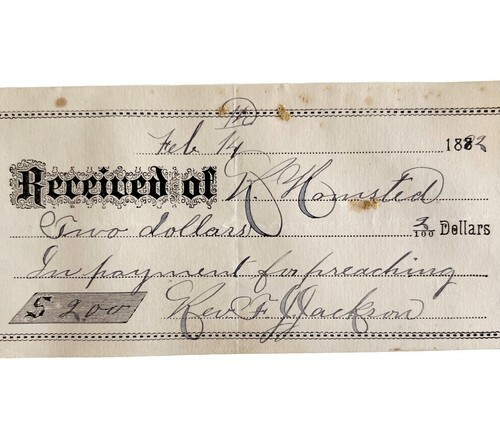 Feb 14 1882
Received of
Two dollars /100 Dollars
In payment for preaching
$ 2.00 Rev. F. J. Jackson